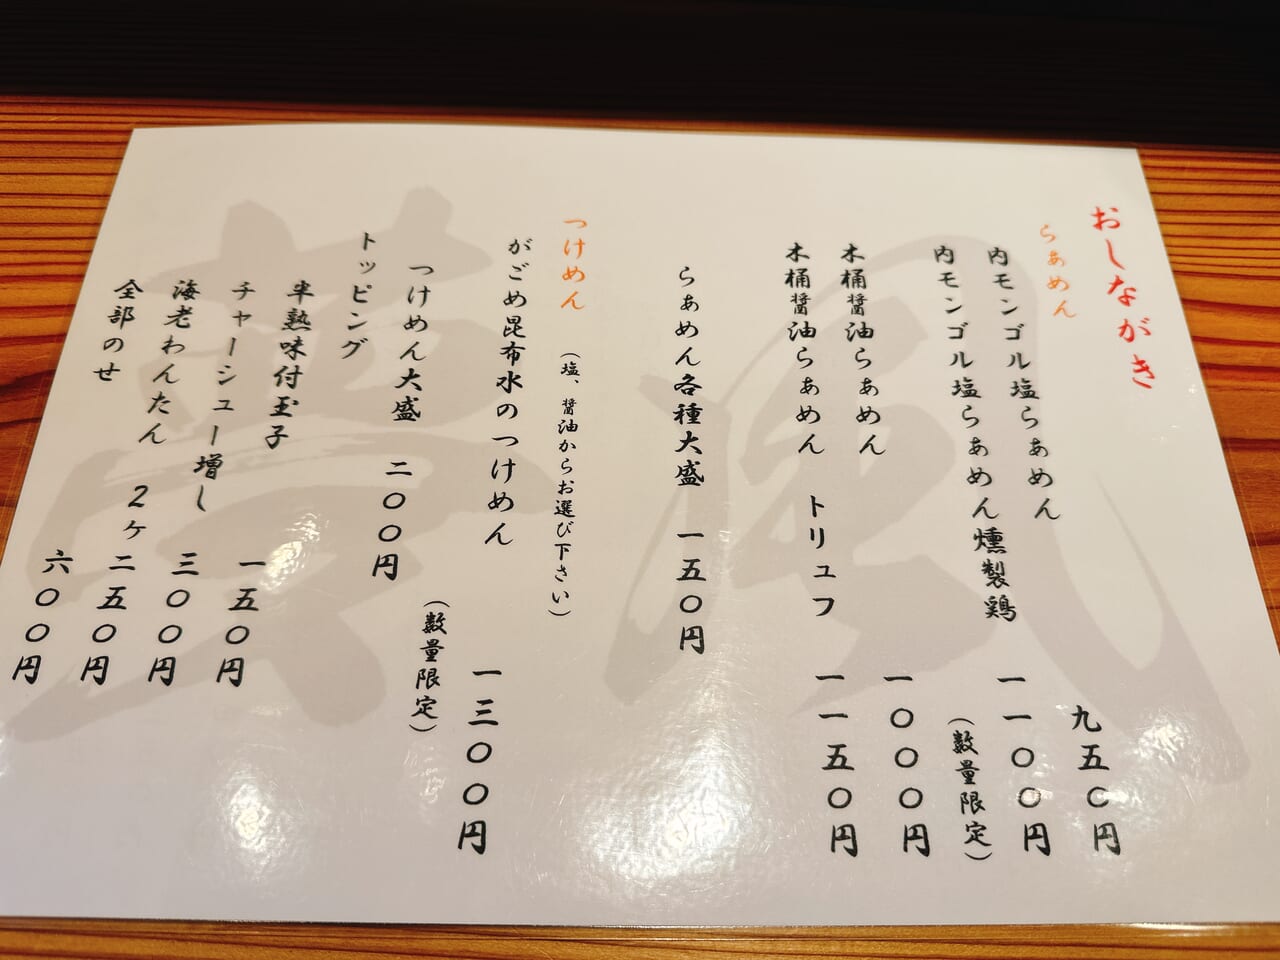 おしながき
らぁめん
内モンゴル塩らぁめん 九五〇円
内モンゴル塩らぁめん燻製鶏 一一〇〇円
（数量限定）
木桶醤油らぁめん 一〇〇〇円
木桶醤油らぁめん トリュフ 一一五〇円
らぁめん各種大盛 一五〇円
つけめん （塩、醤油からお選び下さい）
がごめ昆布水のつけめん 一三〇〇円
（数量限定）
つけめん大盛 二〇〇円
トッピング
半熟味付玉子 一五〇円
チャーシュー増し 三〇〇円
海老わんたん 2ヶ 二五〇円
全部のせ 六〇〇円